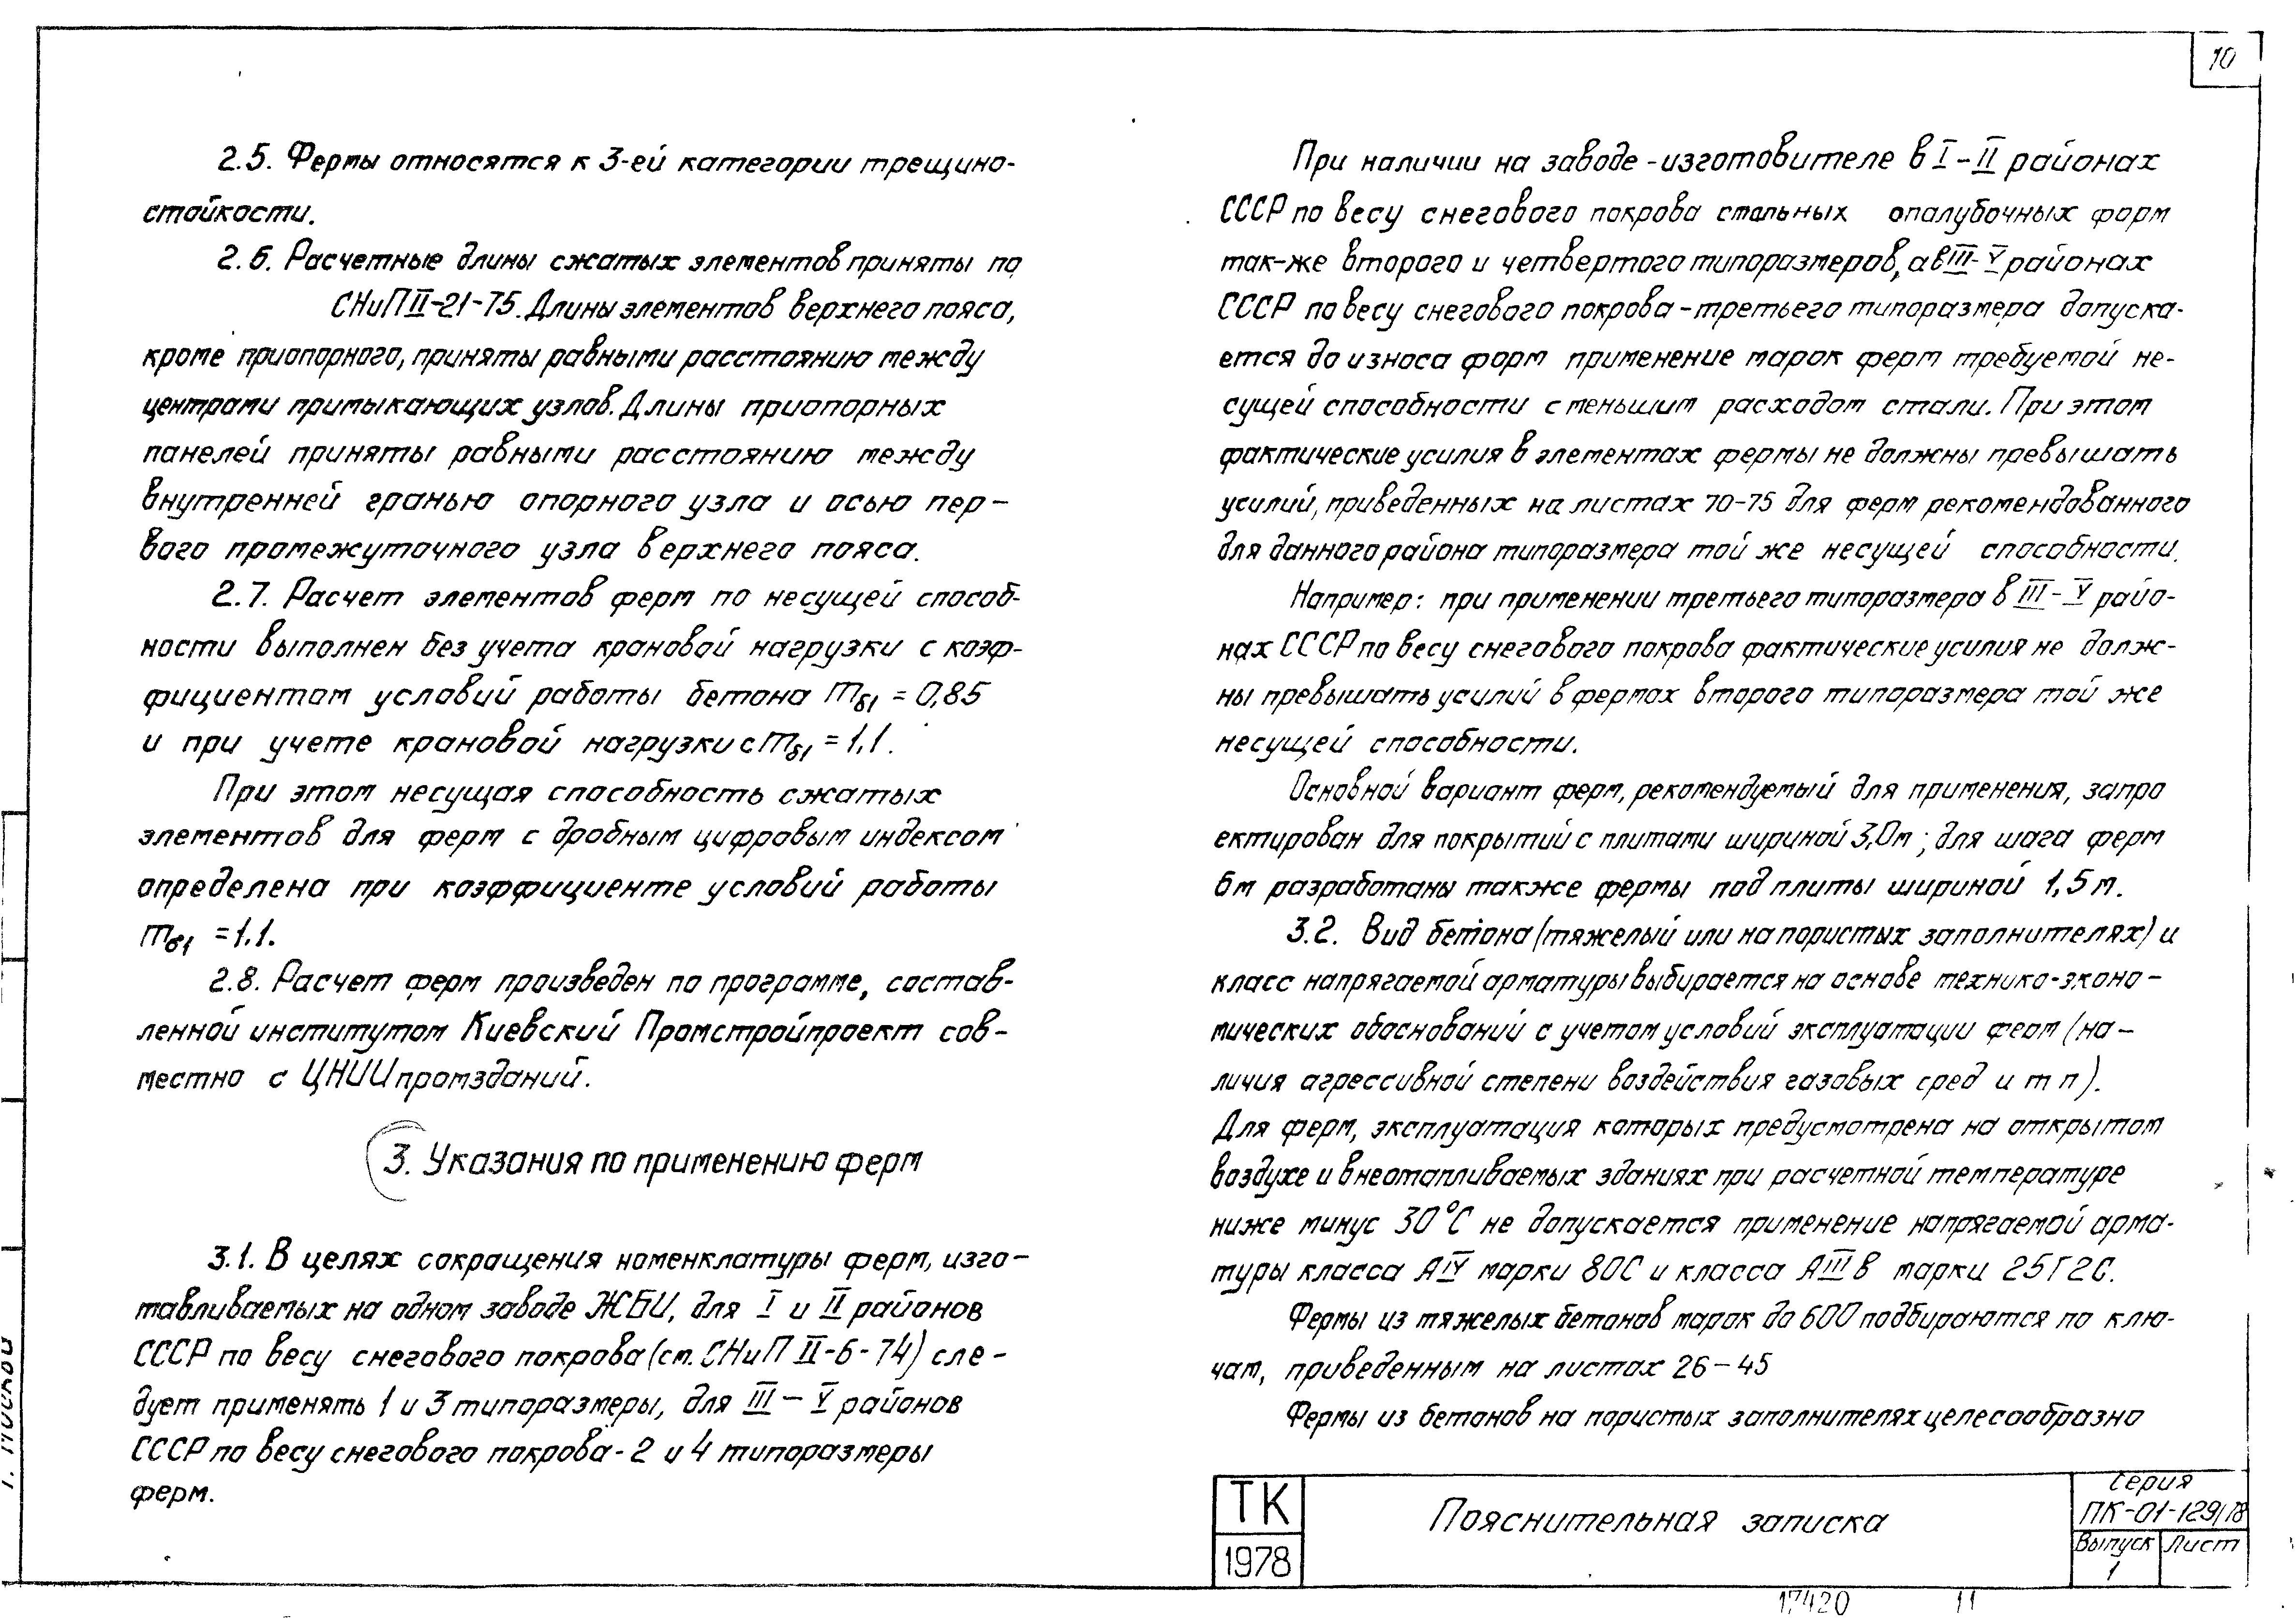 10
2.5. Фермы относятся к 3-ей категории трещино-
стойкости.
2.6. Расчетные длины сжатых элементов приняты по
СНиП II-21-75. Длины элементов верхнего пояса,
кроме приопорного, приняты равными расстоянию между
центрами примыкающих узлов. Длины приопорных
панелей приняты равными расстоянию между
внутренней гранью опорного узла и осью пер-
вого промежуточного узла верхнего пояса.
2.7. Расчет элементов ферм по несущей способ-
ности выполнен без учета крановой нагрузки с коэф-
фициентом условий работы бетона mб1 = 0,85
и при учете крановой нагрузки с mб1 = 1,1.
При этом несущая способность сжатых
элементов для ферм с дробным цифровым индексом
определена при коэффициенте условий работы
mб1 = 1.1.
2.8. Расчет ферм произведен по программе, состав-
ленной институтом Киевский Промстройпроект сов-
местно с ЦНИИпромзданий.
3. Указания по применению ферм
3.1. В целях сокращения номенклатуры ферм, изго-
тавливаемых на одном заводе ЖБИ, для I и II районов
СССР по весу снегового покрова (см. СНиП II-6-74) сле-
дует применять 1 и 3 типоразмеры, для III - V районов
СССР по весу снегового покрова - 2 и 4 типоразмеры
ферм.
При наличии на заводе - изготовителе в I - II районах
СССР по весу снегового покрова стальных опалубочных форм
так-же второго и четвертого типоразмеров, а в III - V районах
СССР по весу снегового покрова - третьего типоразмера допуска-
ется до износа форм применение марок ферм требуемой не-
сущей способности с меньшим расходом стали. При этом
фактические усилия в элементах фермы не должны превышать
усилий, приведенных на листах 70-75 для ферм рекомендованного
для данного района типоразмера той же несущей способности.
Например: при применении третьего типоразмера в III - V райо-
нах СССР по весу снегового покрова фактические усилия не долж-
ны превышать усилий в фермах второго типоразмера той же
несущей способности.
Основной вариант ферм, рекомендуемый для применения, запро
ектирован для покрытий с плитами шириной 3,0м; для шага ферм
6м разработаны также фермы под плиты шириной 1,5м.
3.2. Вид бетона (тяжелый или на пористых заполнителях) и
класс напрягаемой арматуры выбирается на основе технико-эконо-
мических обоснований с учетом условий эксплуатации ферм (на-
личия агрессивной степени воздействия газовых сред и т п).
Для ферм, эксплуатация которых предусмотрена на открытом
воздухе и в неотапливаемых зданиях при расчетной температуре
ниже минус 30°С не допускается применение напрягаемой арма-
туры класса АIV марки 80С и класса АIIIв марки 25Г2С.
Фермы из тяжелых бетонов марок до 600 подбираются по клю-
чам, приведенным на листах 26-45
Фермы из бетонов на пористых заполнителях целесообразно
ТК
1978
Пояснительная записка
Серия
ПК-01-129/78
Выпуск
1
Лист
17420 11